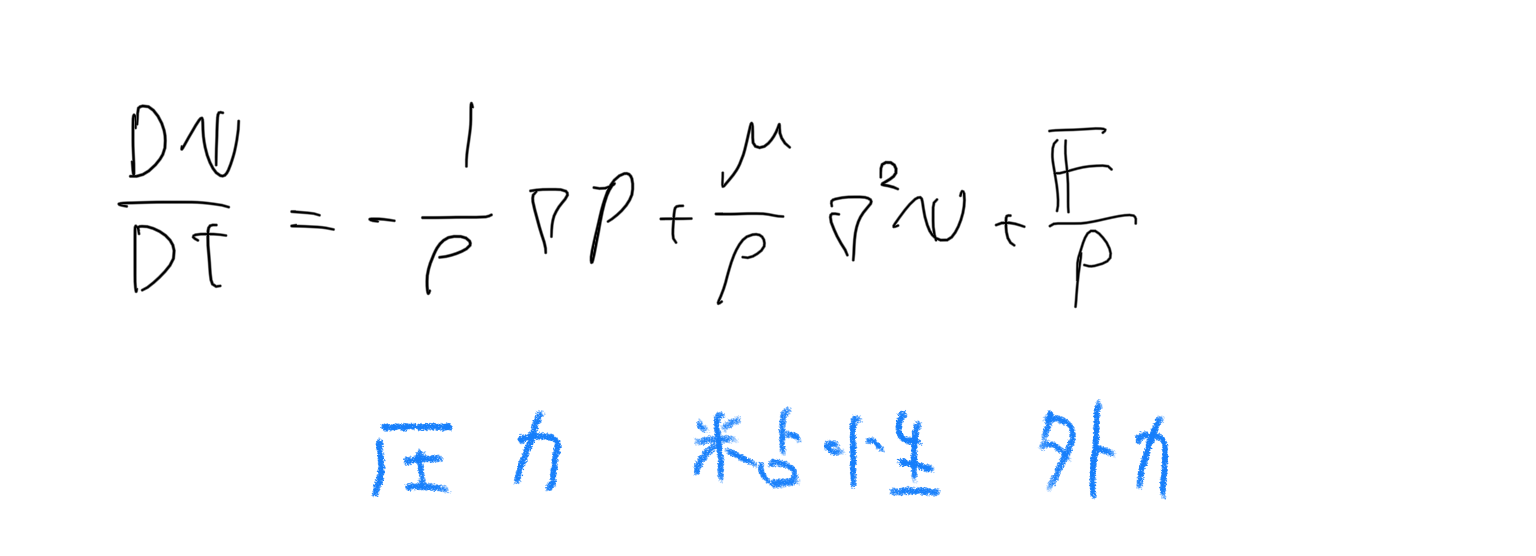 D𝕧/Dt = - 1/ρ ∇p + μ/ρ ∇²𝕧 + 𝔽/ρ
圧力 粘性 外力